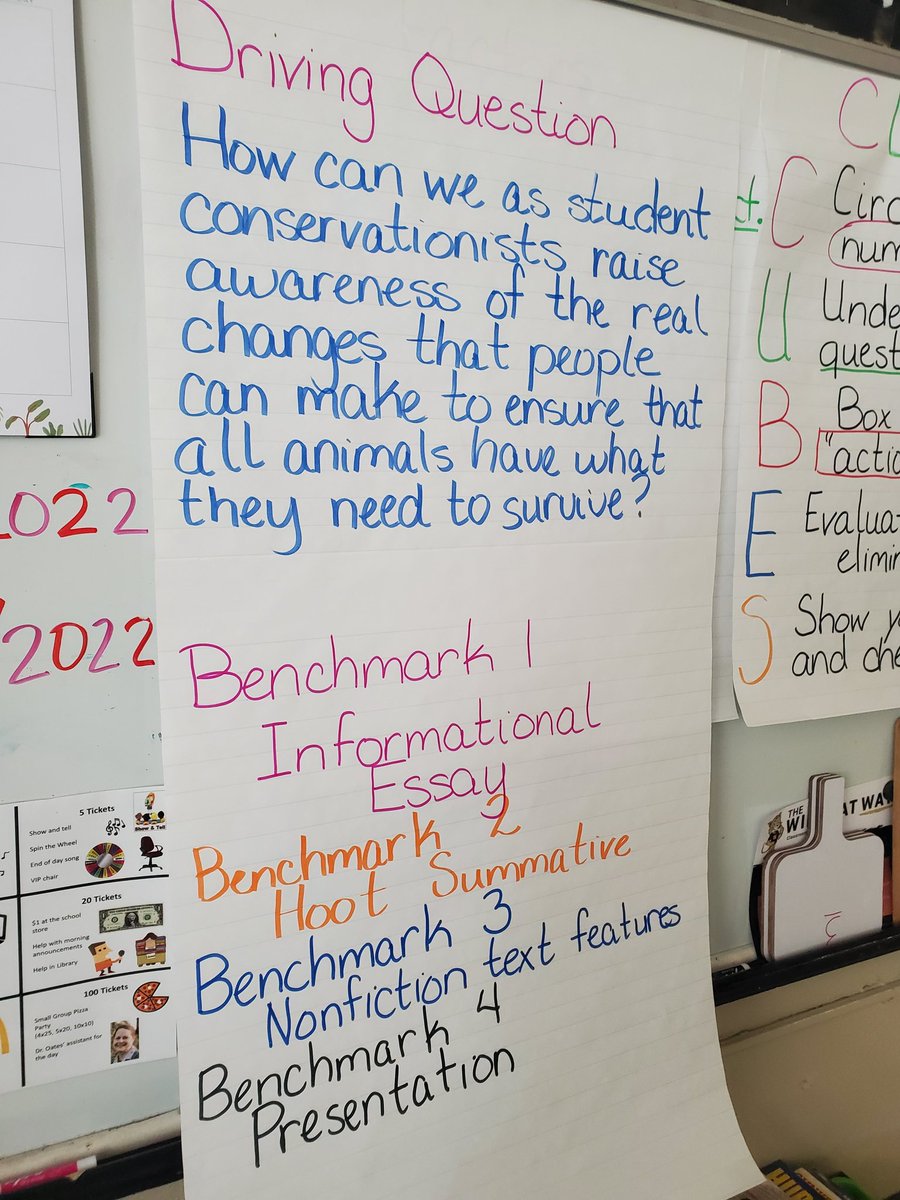 Driving Question
How can we as student
conservationists raise
awareness of the real
changes that people
can make to ensure that
all animals have what
they need to survive?
Benchmark 1
Informational
Essay
Benchmark 2
Hoot Summative
Benchmark 3
Nonfiction text features
Benchmark 4
Presentation
2022
2022
5 Tickets
Show and tell
Spin the Wheel
End of day song
VIP chair
Show & Tell
20 Tickets
$1 at the school
store
Help with morning
announcements
Help in Library
100 Tickets
Small Group Pizza
Party
(4x25, 5x20, 10x10)
Dr. Oates' assistant for
the day
ct.
C
C
U
quest
B Box
E
S Show
and
THE